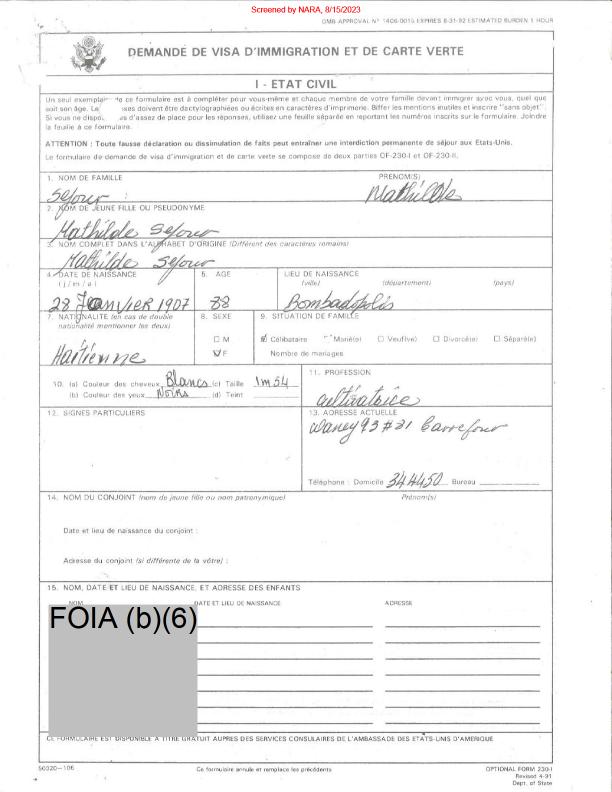 Screened by NARA, 8/15/2023
OMB APPROVAL N° 1406-0015 EXPIRES 8-31-92 ESTIMATED BURDEN 1 HOUR
DEMANDE DE VISA D'IMMIGRATION ET DE CARTE VERTE
I - ETAT CIVIL
Un seul exemplai de ce formulaire est à compléter pour vous-même et chaque membre de votre famille devant immigrer avec vous, quel que
soit son âge. Le ses doivent être dactylographiées ou écrites en caractères d'imprimerie. Biffer les mentions inutiles et inscrire "sans objet".
Si vous ne dispo s d'assez de place pour les réponses, utilisez une feuille séparée en reportant les numéros inscrits sur le formulaire. Joindre
la feuille à ce formulaire.
ATTENTION : Toute fausse déclaration ou dissimulation de faits peut entraîner une interdiction permanente de séjour aux Etats-Unis.
Le formulaire de demande de visa d'immigration et de carte verte se compose de deux parties OF-230-I et OF-230-II.
1. NOM DE FAMILLE PRENOM(S)
Sejour : Mathilde
2. NOM DE JEUNE FILLE OU PSEUDONYME
Mathilde Sejour
3. NOM COMPLET DANS L'ALPHABET D'ORIGINE (Différent des caractères romains)
Mathilde Sejour
4. DATE DE NAISSANCE 5. AGE LIEU DE NAISSANCE
(j / m / a) (ville) (département) (pays)
28 Janvier 1907 83 Bombadopolis
7. NATIONALITE (en cas de double 8. SEXE 9. SITUATION DE FAMILLE
nationalité mentionner les deux)
M Célibataire Marié(e) Veuf(ve) Divorcé(e) Séparé(e)
Haïtienne F Nombre de mariages
10. (a) Couleur des cheveux Blancs (c) Taille 1m54 11. PROFESSION
(b) Couleur des yeux Noirs (d) Teint cultivatrice
12. SIGNES PARTICULIERS 13. ADRESSE ACTUELLE
Waney 93 #21 Carrefour
Téléphone : Domicile 344450 Bureau
14. NOM DU CONJOINT (nom de jeune fille ou nom patronymique) Prénom(s)
Date et lieu de naissance du conjoint :
Adresse du conjoint (si différente de la vôtre) :
15. NOM, DATE ET LIEU DE NAISSANCE, ET ADRESSE DES ENFANTS
NOM DATE ET LIEU DE NAISSANCE ADRESSE
FOIA (b)(6)
CE FORMULAIRE EST DISPONIBLE A TITRE GRATUIT AUPRES DES SERVICES CONSULAIRES DE L'AMBASSADE DES ETATS-UNIS D'AMERIQUE
50320-106 Ce formulaire annule et remplace les précédents OPTIONAL FORM 230-I
Revised 4-91
Dept. of State